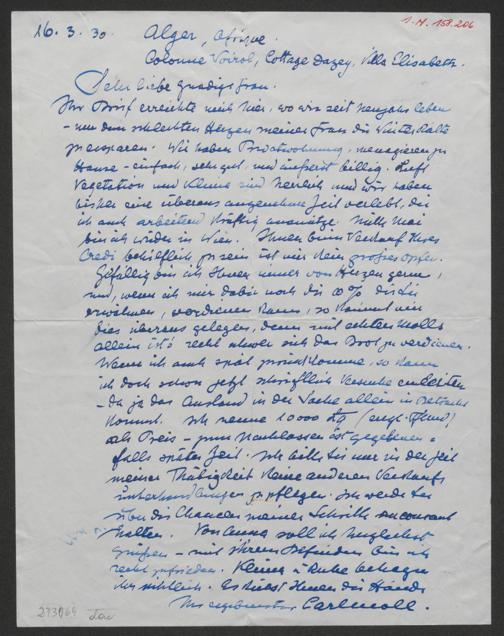 16.3.30. Alger, Afrique.
I.N. 158.206
Colonne Voirol, Cottage Dazey, Villa Elisabeth.
Sehr liebe gnädige Frau.
Ihr Brief erreichte mich hier, wo wir seit Neujahr leben
– um dem schlechten Herzen meiner Frau die Winterkälte
zu ersparen. Wir haben Privatwohnung, menagieren zu
Hause – einfach, sehr gut, und äusserst billig. Luft
Vegetation und Klima sind herrlich und wir haben
bisher eine überaus angenehme Zeit verlebt, die
ich auch arbeitend kräftig ausnütze. Mitte Mai
bin ich wieder in Wien. Ihnen beim Verkauf Ihres
Credi behilflich zu sein ist mir kein grosses Opfer.
Gefällig bin ich Ihnen immer von Herzen gerne,
und, wenn ich mir dabei noch die % die Sie
erwähnen, verdienen kann, so kommt mir
dies überaus gelegen, denn mit echten Molls
allein ist's recht schwer sich das Brot zu verdienen.
Wenn ich auch spät komme, so kann
ich doch schon jetzt schriftlich Versuche einleiten
– da ja das Ausland in der Sache allein in Betracht
kommt. Ich nenne 10000 (engl. Pfund)
als Preis – zum Nachlassen ist gegebenen-
falls später Zeit. Ich bitte Sie nur in der Zeit
meiner Thätigkeit keine anderen Verkaufs
unterhandlungen zu pflegen. Ich werde Sie
über die Chancen meiner Schritte au courant
halten. Von Anna soll ich herzlichst
grüßen – mit ihrem Befinden bin ich
recht zufrieden. Klima u Ruhe behagen
ihr sichtlich. Es küsst Ihnen die Hände
Ihr ergebenster Carl Moll.
273064